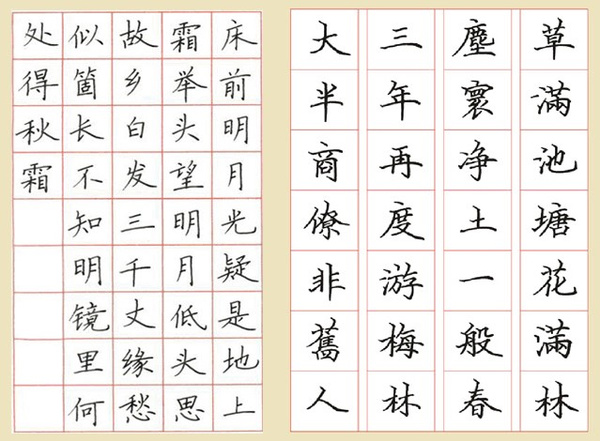 床前明月光疑是地上
霜举头望明月低头思
故乡白发三千丈缘愁
似箇长不知明镜里何
处得秋霜
草滿池塘花滿林
塵寰净土一般春
三年再度游梅林
大半商僚非舊人